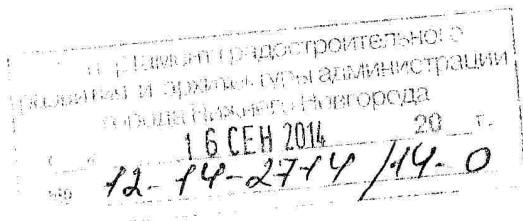 департамент градостроительного
развития и архитектуры администрации
города Нижнего Новгорода
16 СЕН 2014 20 г.
№ 12-14-2714/14-0